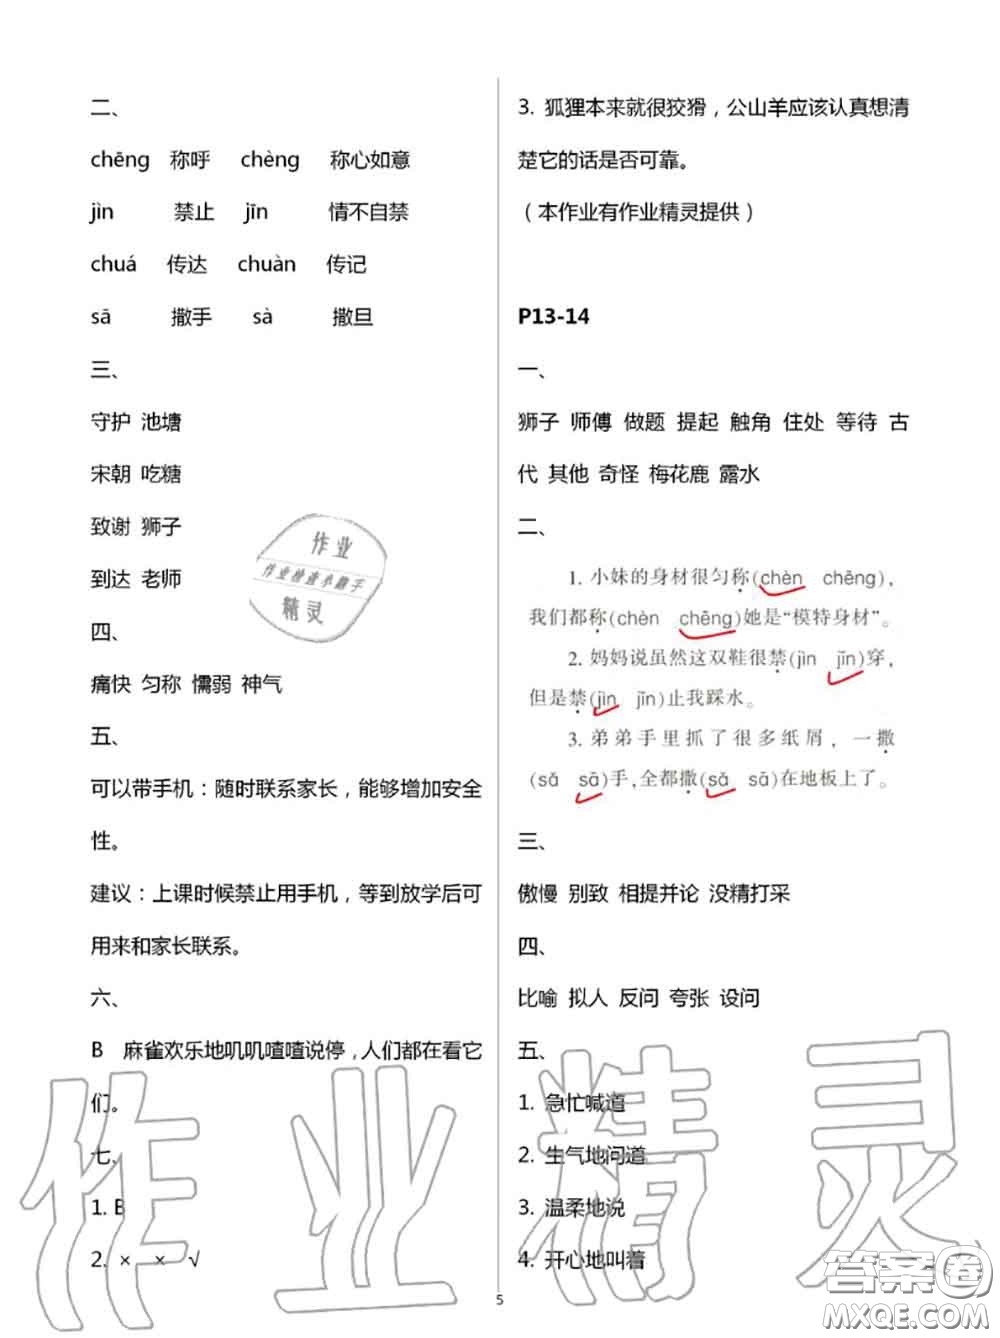 二、
chēng 称呼 chèng 称心如意
jìn 禁止 jīn 情不自禁
chuá 传达 chuàn 传记
sā 撒手 sà 撒旦
三、
守护 池塘
宋朝 吃糖
致谢 狮子
到达 老师
四、
痛快 匀称 懦弱 神气
五、
可以带手机：随时联系家长，能够增加安全
性。
建议：上课时候禁止用手机，等到放学后可
用来和家长联系。
六、
B 麻雀欢乐地叽叽喳喳说停，人们都在看它
们。
七、
1. B
2. × × √
3. 狐狸本来就很狡猾，公山羊应该认真想清
楚它的话是否可靠。
（本作业有作业精灵提供）
P13-14
一、
狮子 师傅 做题 提起 触角 住处 等待 古
代 其他 奇怪 梅花鹿 露水
二、
1. 小妹的身材很匀称(chèn chēng)，
我们都称(chèn chēng)她是“模特身材”。
2. 妈妈说虽然这双鞋很禁(jìn jīn)穿，
但是禁(jìn jīn)止我踩水。
3. 弟弟手里抓了很多纸屑，一撒
(sǎ sā)手，全都撒(sǎ sā)在地板上了。
三、
傲慢 别致 相提并论 没精打采
四、
比喻 拟人 反问 夸张 设问
五、
1. 急忙喊道
2. 生气地问道
3. 温柔地说
4. 开心地叫着
5
作业
作业检查小助手
精灵
作业精灵
答案圈
MXQE.COM